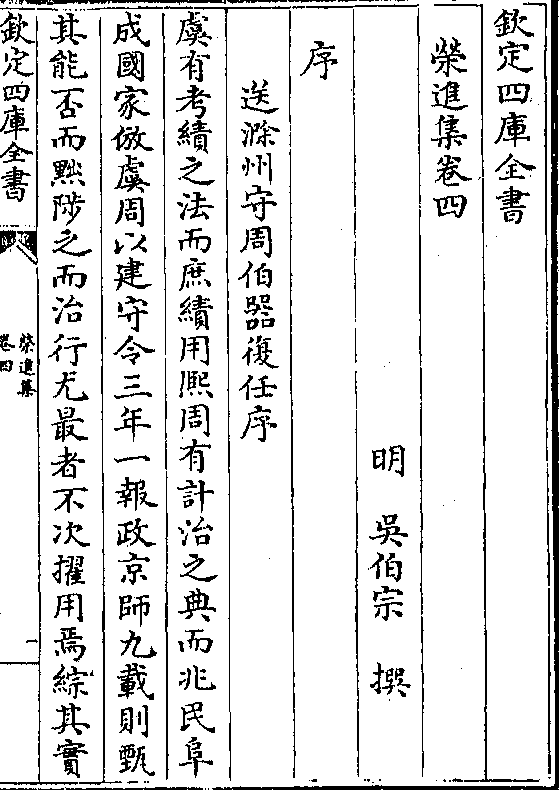 欽定四庫全書
榮進集卷四
明 吳伯宗 撰
序
送滁州守周伯器復任序
虞有考績之法而庶績用熈周有計治之典而兆民阜
成國家倣虞周以建守令三年一報政京師九載則甄
其能否而黜陟之而治行尤最者不次擢用焉綜其實
欽定四庫全書
榮進集
卷四
一